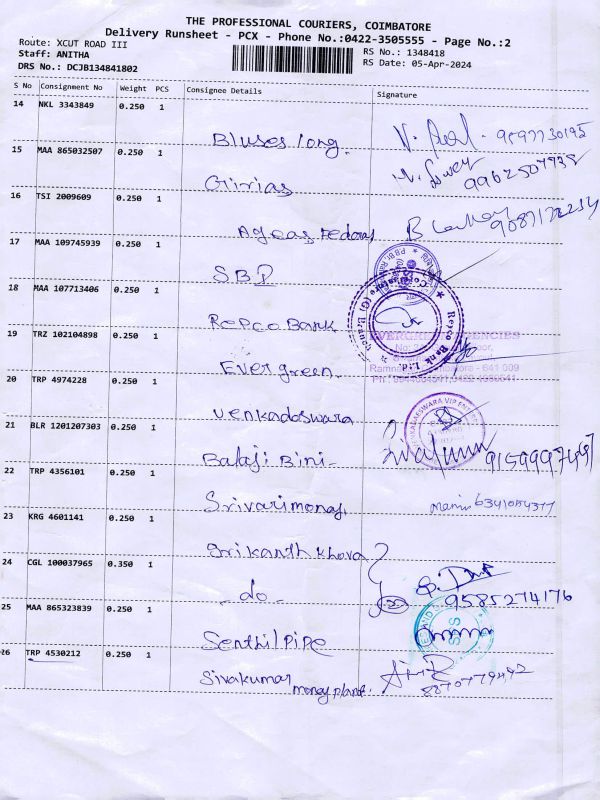 THE PROFESSIONAL COURIERS, COIMBATORE
Delivery Runsheet - PCX - Phone No.:0422-3505555 - Page No.:2
Route: XCUT ROAD III
RS No.: 1348418
Staff: ANITHA
RS Date: 05-Apr-2024
DRS No.: DCJB134841802
S No Consignment No Weight PCS Consignee Details Signature
14 NKL 3343849 0.250 1
Bluses long.
15 MAA 865032507 0.250 1
Girias
9962507938
16 TSI 2009609 0.250 1
17 MAA 109745939 0.250 1
SBI
18 MAA 107713406 0.250 1
Repco Bank
Repco Bank Ltd.
19 TRZ 102104898 0.250 1
EVERGREEN AGENCIES
Ever green.
641 009
20 TRP 4974228 0.250 1
venkadeswara
21 BLR 1201207303 0.250 1
Balaji Bini-
22 TRP 4356101 0.250 1
Srivari money,
23 KRG 4601141 0.250 1
Srikanth khova
24 CGL 100037965 0.350 1
-do-
9585274176
25 MAA 865323839 0.250 1
Senthil PiPe
26 TRP 4530212 0.250 1
Sivakumar money plant.
8870779492